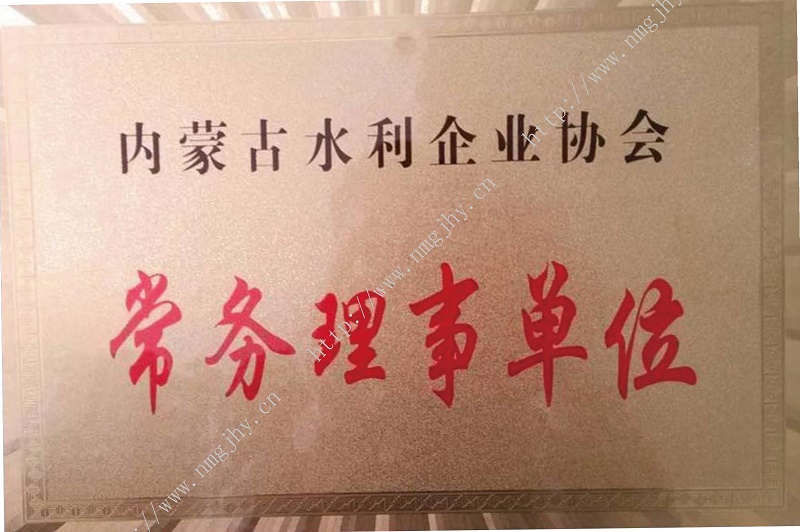 内蒙古水利企业协会
常务理事单位
http://www.nmgjhy.cn
http://www.nmgjhy.cn
http://www.nmgjhy.cn